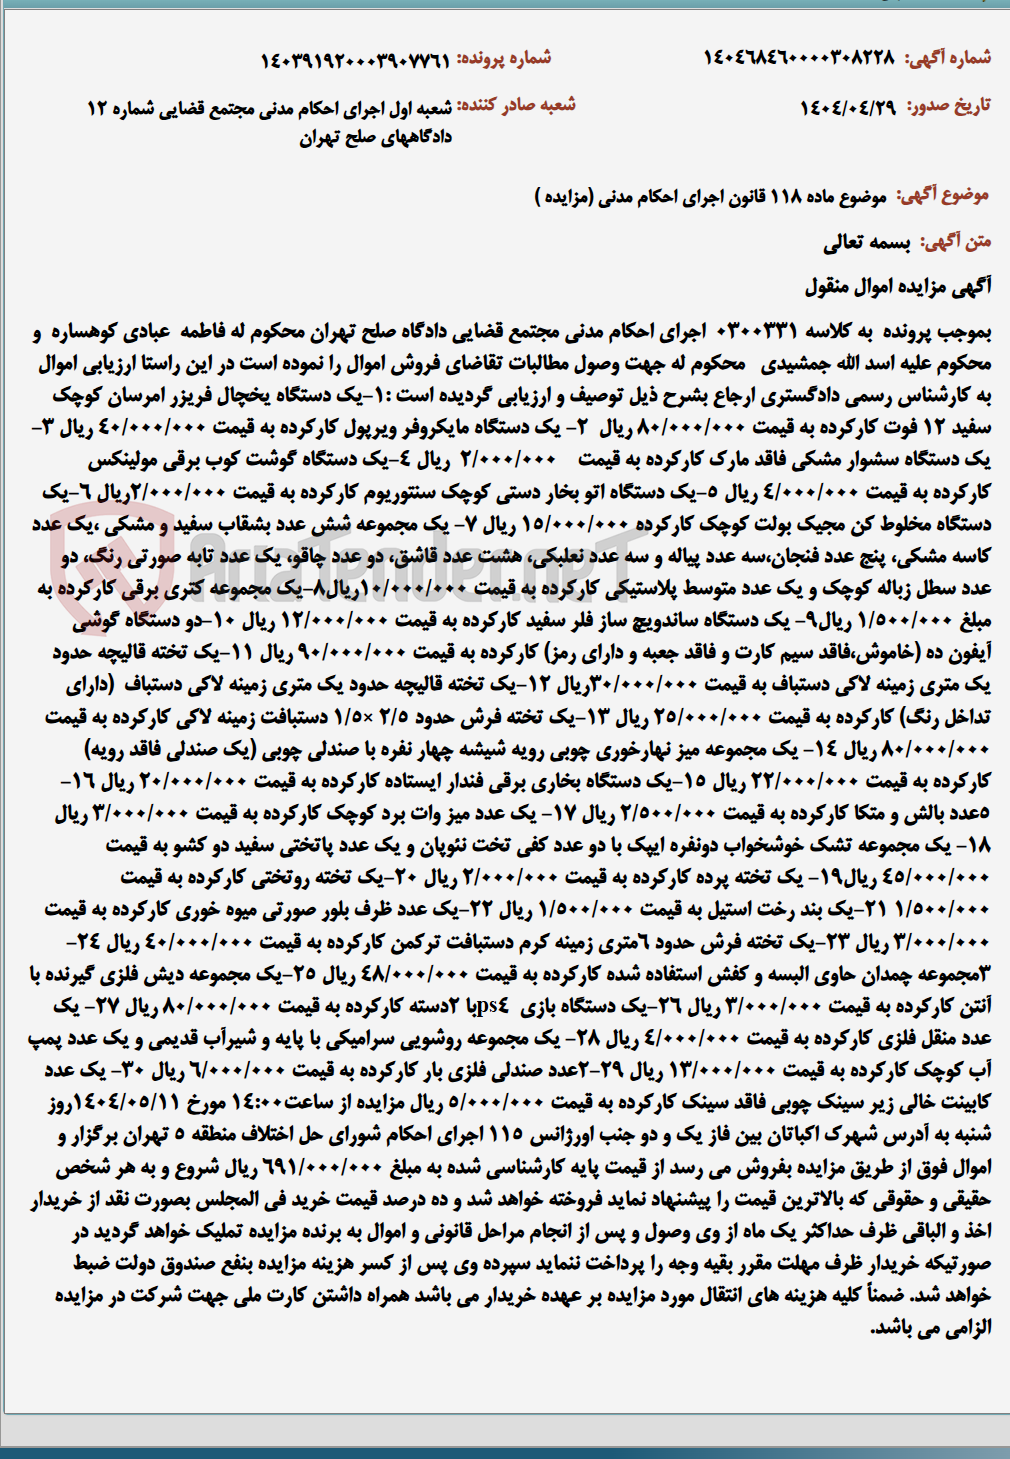 شماره آگهی: ۱۴۰۴۶۸۴۶۰۰۰۰۳۰۸۲۲۸ شماره پرونده: ۱۴۰۳۹۱۹۲۰۰۰۳۹۰۷۷۶۱
تاریخ صدور: ۱۴۰۴/۰۴/۲۹ شعبه صادر کننده: شعبه اول اجرای احکام مدنی مجتمع قضایی شماره ۱۲
دادگاههای صلح تهران
موضوع آگهی: موضوع ماده ۱۱۸ قانون اجرای احکام مدنی (مزایده )
متن آگهی: بسمه تعالی
آگهی مزایده اموال منقول
بموجب پرونده به کلاسه ۰۳۰۰۳۳۱ اجرای احکام مدنی مجتمع قضایی دادگاه صلح تهران محکوم له فاطمه عبادی کوهساره و
محکوم علیه اسد الله جمشیدی محکوم له جهت وصول مطالبات تقاضای فروش اموال را نموده است در این راستا ارزیابی اموال
به کارشناس رسمی دادگستری ارجاع بشرح ذیل توصیف و ارزیابی گردیده است :۱-یک دستگاه یخچال فریزر امرسان کوچک
سفید ۱۲ فوت کارکرده به قیمت ۸۰/۰۰۰/۰۰۰ ریال ۲- یک دستگاه مایکروفر ویرپول کارکرده به قیمت ۴۰/۰۰۰/۰۰۰ ریال ۳-
یک دستگاه سشوار مشکی فاقد مارک کارکرده به قیمت ۲/۰۰۰/۰۰۰ ریال ۴-یک دستگاه گوشت کوب برقی مولینکس
کارکرده به قیمت ۴/۰۰۰/۰۰۰ ریال ۵-یک دستگاه اتو بخار دستی کوچک سنتوریوم کارکرده به قیمت ۲/۰۰۰/۰۰۰ریال ۶-یک
دستگاه مخلوط کن مجیک بولت کوچک کارکرده ۱۵/۰۰۰/۰۰۰ ریال ۷- یک مجموعه شش عدد بشقاب سفید و مشکی ،یک عدد
کاسه مشکی، پنج عدد فنجان،سه عدد پیاله و سه عدد نعلبکی، هشت عدد قاشق، دو عدد چاقو، یک عدد تابه صورتی رنگ، دو
عدد سطل زباله کوچک و یک عدد متوسط پلاستیکی کارکرده به قیمت ۱۰/۰۰۰/۰۰۰ریال۸-یک مجموعه کتری برقی کارکرده به
مبلغ ۱/۵۰۰/۰۰۰ ریال۹- یک دستگاه ساندویچ ساز فلر سفید کارکرده به قیمت ۱۲/۰۰۰/۰۰۰ ریال ۱۰-دو دستگاه گوشی
آیفون ده (خاموش،فاقد سیم کارت و فاقد جعبه و دارای رمز) کارکرده به قیمت ۹۰/۰۰۰/۰۰۰ ریال ۱۱-یک تخته قالیچه حدود
یک متری زمینه لاکی دستباف به قیمت ۳۰/۰۰۰/۰۰۰ریال ۱۲-یک تخته قالیچه حدود یک متری زمینه لاکی دستباف (دارای
تداخل رنگ) کارکرده به قیمت ۲۵/۰۰۰/۰۰۰ ریال ۱۳-یک تخته فرش حدود ۲/۵ ×۱/۵ دستبافت زمینه لاکی کارکرده به قیمت
۸۰/۰۰۰/۰۰۰ ریال ۱۴- یک مجموعه میز نهارخوری چوبی رویه شیشه چهار نفره با صندلی چوبی (یک صندلی فاقد رویه)
کارکرده به قیمت ۲۲/۰۰۰/۰۰۰ ریال ۱۵-یک دستگاه بخاری برقی فندار ایستاده کارکرده به قیمت ۲۰/۰۰۰/۰۰۰ ریال ۱۶-
۵عدد بالش و متکا کارکرده به قیمت ۲/۵۰۰/۰۰۰ ریال ۱۷- یک عدد میز وات برد کوچک کارکرده به قیمت ۳/۰۰۰/۰۰۰ ریال
۱۸- یک مجموعه تشک خوشخواب دونفره اپیک با دو عدد کفی تخت نئوپان و یک عدد پاتختی سفید دو کشو به قیمت
۴۵/۰۰۰/۰۰۰ ریال۱۹- یک تخته پرده کارکرده به قیمت ۲/۰۰۰/۰۰۰ ریال ۲۰-یک تخته روتختی کارکرده به قیمت
۱/۵۰۰/۰۰۰ ۲۱-یک بند رخت استیل به قیمت ۱/۵۰۰/۰۰۰ ریال ۲۲-یک عدد ظرف بلور صورتی میوه خوری کارکرده به قیمت
۳/۰۰۰/۰۰۰ ریال ۲۳-یک تخته فرش حدود ۶متری زمینه کرم دستبافت ترکمن کارکرده به قیمت ۴۰/۰۰۰/۰۰۰ ریال ۲۴-
۳مجموعه چمدان حاوی البسه و کفش استفاده شده کارکرده به قیمت ۴۸/۰۰۰/۰۰۰ ریال ۲۵-یک مجموعه دیش فلزی گیرنده با
آنتن کارکرده به قیمت ۳/۰۰۰/۰۰۰ ریال ۲۶-یک دستگاه بازی ps۴با ۲دسته کارکرده به قیمت ۸۰/۰۰۰/۰۰۰ ریال ۲۷- یک
عدد منقل فلزی کارکرده به قیمت ۴/۰۰۰/۰۰۰ ریال ۲۸- یک مجموعه روشویی سرامیکی با پایه و شیرآب قدیمی و یک عدد پمپ
آب کوچک کارکرده به قیمت ۱۳/۰۰۰/۰۰۰ ریال ۲۹-۲عدد صندلی فلزی بار کارکرده به قیمت ۶/۰۰۰/۰۰۰ ریال ۳۰- یک عدد
کابینت خالی زیر سینک چوبی فاقد سینک کارکرده به قیمت ۵/۰۰۰/۰۰۰ ریال مزایده از ساعت۱۴:۰۰ مورخ ۱۴۰۴/۰۵/۱۱روز
شنبه به آدرس شهرک اکباتان بین فاز یک و دو جنب اورژانس ۱۱۵ اجرای احکام شورای حل اختلاف منطقه ۵ تهران برگزار و
اموال فوق از طریق مزایده بفروش می رسد از قیمت پایه کارشناسی شده به مبلغ ۶۹۱/۰۰۰/۰۰۰ ریال شروع و به هر شخص
حقیقی و حقوقی که بالاترین قیمت را پیشنهاد نماید فروخته خواهد شد و ده درصد قیمت خرید فی المجلس بصورت نقد از خریدار
اخذ و الباقی ظرف حداکثر یک ماه از وی وصول و پس از انجام مراحل قانونی و اموال به برنده مزایده تملیک خواهد گردید در
صورتیکه خریدار ظرف مهلت مقرر بقیه وجه را پرداخت ننماید سپرده وی پس از کسر هزینه مزایده بنفع صندوق دولت ضبط
خواهد شد. ضمناً کلیه هزینه های انتقال مورد مزایده بر عهده خریدار می باشد همراه داشتن کارت ملی جهت شرکت در مزایده
الزامی می باشد.
AriaTender.neT